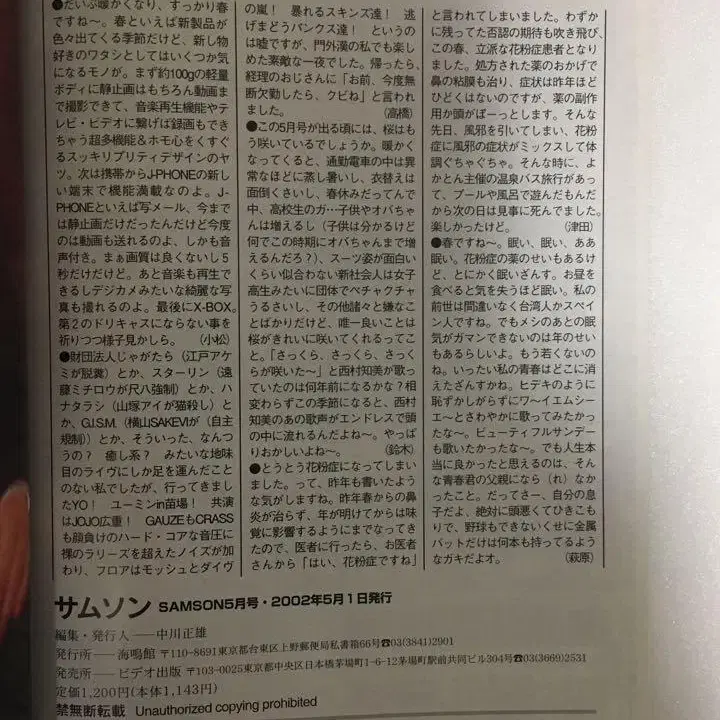 ●だいぶ暖かくなり、すっかり春
ですね〜。春といえば新製品が
色々出てくる季節だけど、新し物
好きのワタシとしてはいくつか気
になるモノが。まず約100gの軽量
ボディに静止画はもちろん動画ま
で撮影できて、音楽再生機能やテ
レビ・ビデオに繋げば録画もでき
ちゃう超多機能＆ホモ心をくすぐ
るスッキリプリティデザインのヤ
ツ。次は携帯からJ-PHONEの新し
い端末で機能満載なのよ。J-
PHONEといえば写メール、今まで
は静止画だけだったんだけど今度
のは動画も送れるのよ、しかも音
声付き。まぁ画質は良くないし5
秒だけだけど。あと音楽も再生で
きるしデジカメみたいな綺麗な写
真も撮れるのよ。最後にX-BOX。
第2のドリキャスにならない事を
祈りつつ様子見かしら。（小松）
●財団法人じゃがたら（江戸アケ
ミが脱糞）とか、スターリン（遠
藤ミチロウが尺八強制）とか、ハ
ナタラシ（山塚アイが猫殺し）と
か、G.I.S.M.（横山SAKEVIが（自主
規制））とか、そういった、なんつ
うの？　癒し系？　みたいな地味
目のライヴにしか足を運んだこと
のない私でしたが、行ってきまし
たYO！　ユーミンin苗場！　共演
はJOJO広重！　GAUZEもCRASS
も顔負けのハード・コアな音圧に
裸のラリーズを超えたノイズが加
わり、フロアはモッシュとダイヴ
の嵐！　暴れるスキンズ達！　逃
げまどうパンクス達！　というの
は嘘ですが、門外漢の私でも楽し
めた素敵な一夜でした。帰ったら、
経理のおじさんに「お前、今度無
断欠勤したら、クビね」と言われ
ました。（高橋）
●この5月号が出る頃には、桜はも
う咲いているでしょうか。暖かく
なってくると、通勤電車の中は異
常なほどに蒸し暑いし、衣替えは
面倒くさいし、春休みだってんで
中、高校生のガ…子供やオバちゃ
んは増えるし（子供は分かるけど
何でこの時期にオバちゃんまで増
えるんだろ？）、スーツ姿が面白い
くらい似合わない新社会人は女子
高生みたいに団体でペチャクチャ
うるさいし、その他諸々と嫌なこ
とばかりだけど、唯一良いことは
桜がきれいに咲いてくれるってこ
と。「さっくら、さっくら、さっくら
が咲いた〜」と西村知美が歌って
いたのは何年前になるかな？相
変わらずこの季節になると、西村
知美のあの歌声がエンドレスで頭
の中に流れるんだよね〜。やっぱ
りおかしいよね〜。（鈴木）
●とうとう花粉症になってしまい
ました。って、昨年も書いたような
気がしますね。昨年春からの鼻
炎が治らず、年が明けてからは味
覚に影響するようにまでなってき
たので、医者に行ったら、お医者
さんから「はい、花粉症ですね」
と言われてしまいました。わずか
に残ってた否認の期待も吹き飛び、
この春、立派な花粉症患者となり
ました。処方された薬のおかげで
鼻の粘膜も治り、症状は昨年ほど
ひどくはないのですが、薬の副作
用か頭がぼーっとします。そんな
先日、風邪を引いてしまい、花粉
症に風邪の症状がミックスして体
調ぐちゃぐちゃ。そんな時に、よ
かとん主催の温泉バス旅行があっ
て、プールや風呂で遊んだもんだ
から次の日は見事に死んでました。
楽しかったけど。（津田）
●春ですね〜。眠い、眠い、ああ
眠い。花粉症の薬のせいもあるけ
ど、とにかく眠いざんす。お昼を
食べると気を失うほど眠い。私の
前世は間違いなく台湾人かスペイ
ン人ですね。でもメシのあとの眠
気がガマンできないのは年のせい
もあるらしいよ。もう若くないの
ね。いったい私の青春はどこに消
えたざんすかね。ヒデキのように
恥ずかしがらずにワ〜イエムシー
エ〜とさわやかに歌ってみたかっ
たな〜。ビューティフルサンデー
も歌いたかったな〜。でも人生本
当に良かったと思えるのは、そん
な青春君の父親になら（れ）なか
ったこと。だってさー、自分の息
子だよ、絶対に頭悪くてひきこも
りで、野球もできないくせに金属
バットだけは何本も持ってるよう
なガキだよオ。（萩原）
サムソン SAMSON5月号・2002年5月1日発行
編集・発行人──中川正雄
発行所──海鳴館 〒110-8691東京都台東区上野郵便局私書箱66号☎03(3841)2901
発売所──ビデオ出版 〒103-0025東京都中央区日本橋茅場町1-6-12茅場町駅前共同ビル304号☎03(3669)2531
定価1,200円(本体1,143円)
禁無断転載 Unauthorized copying prohibited